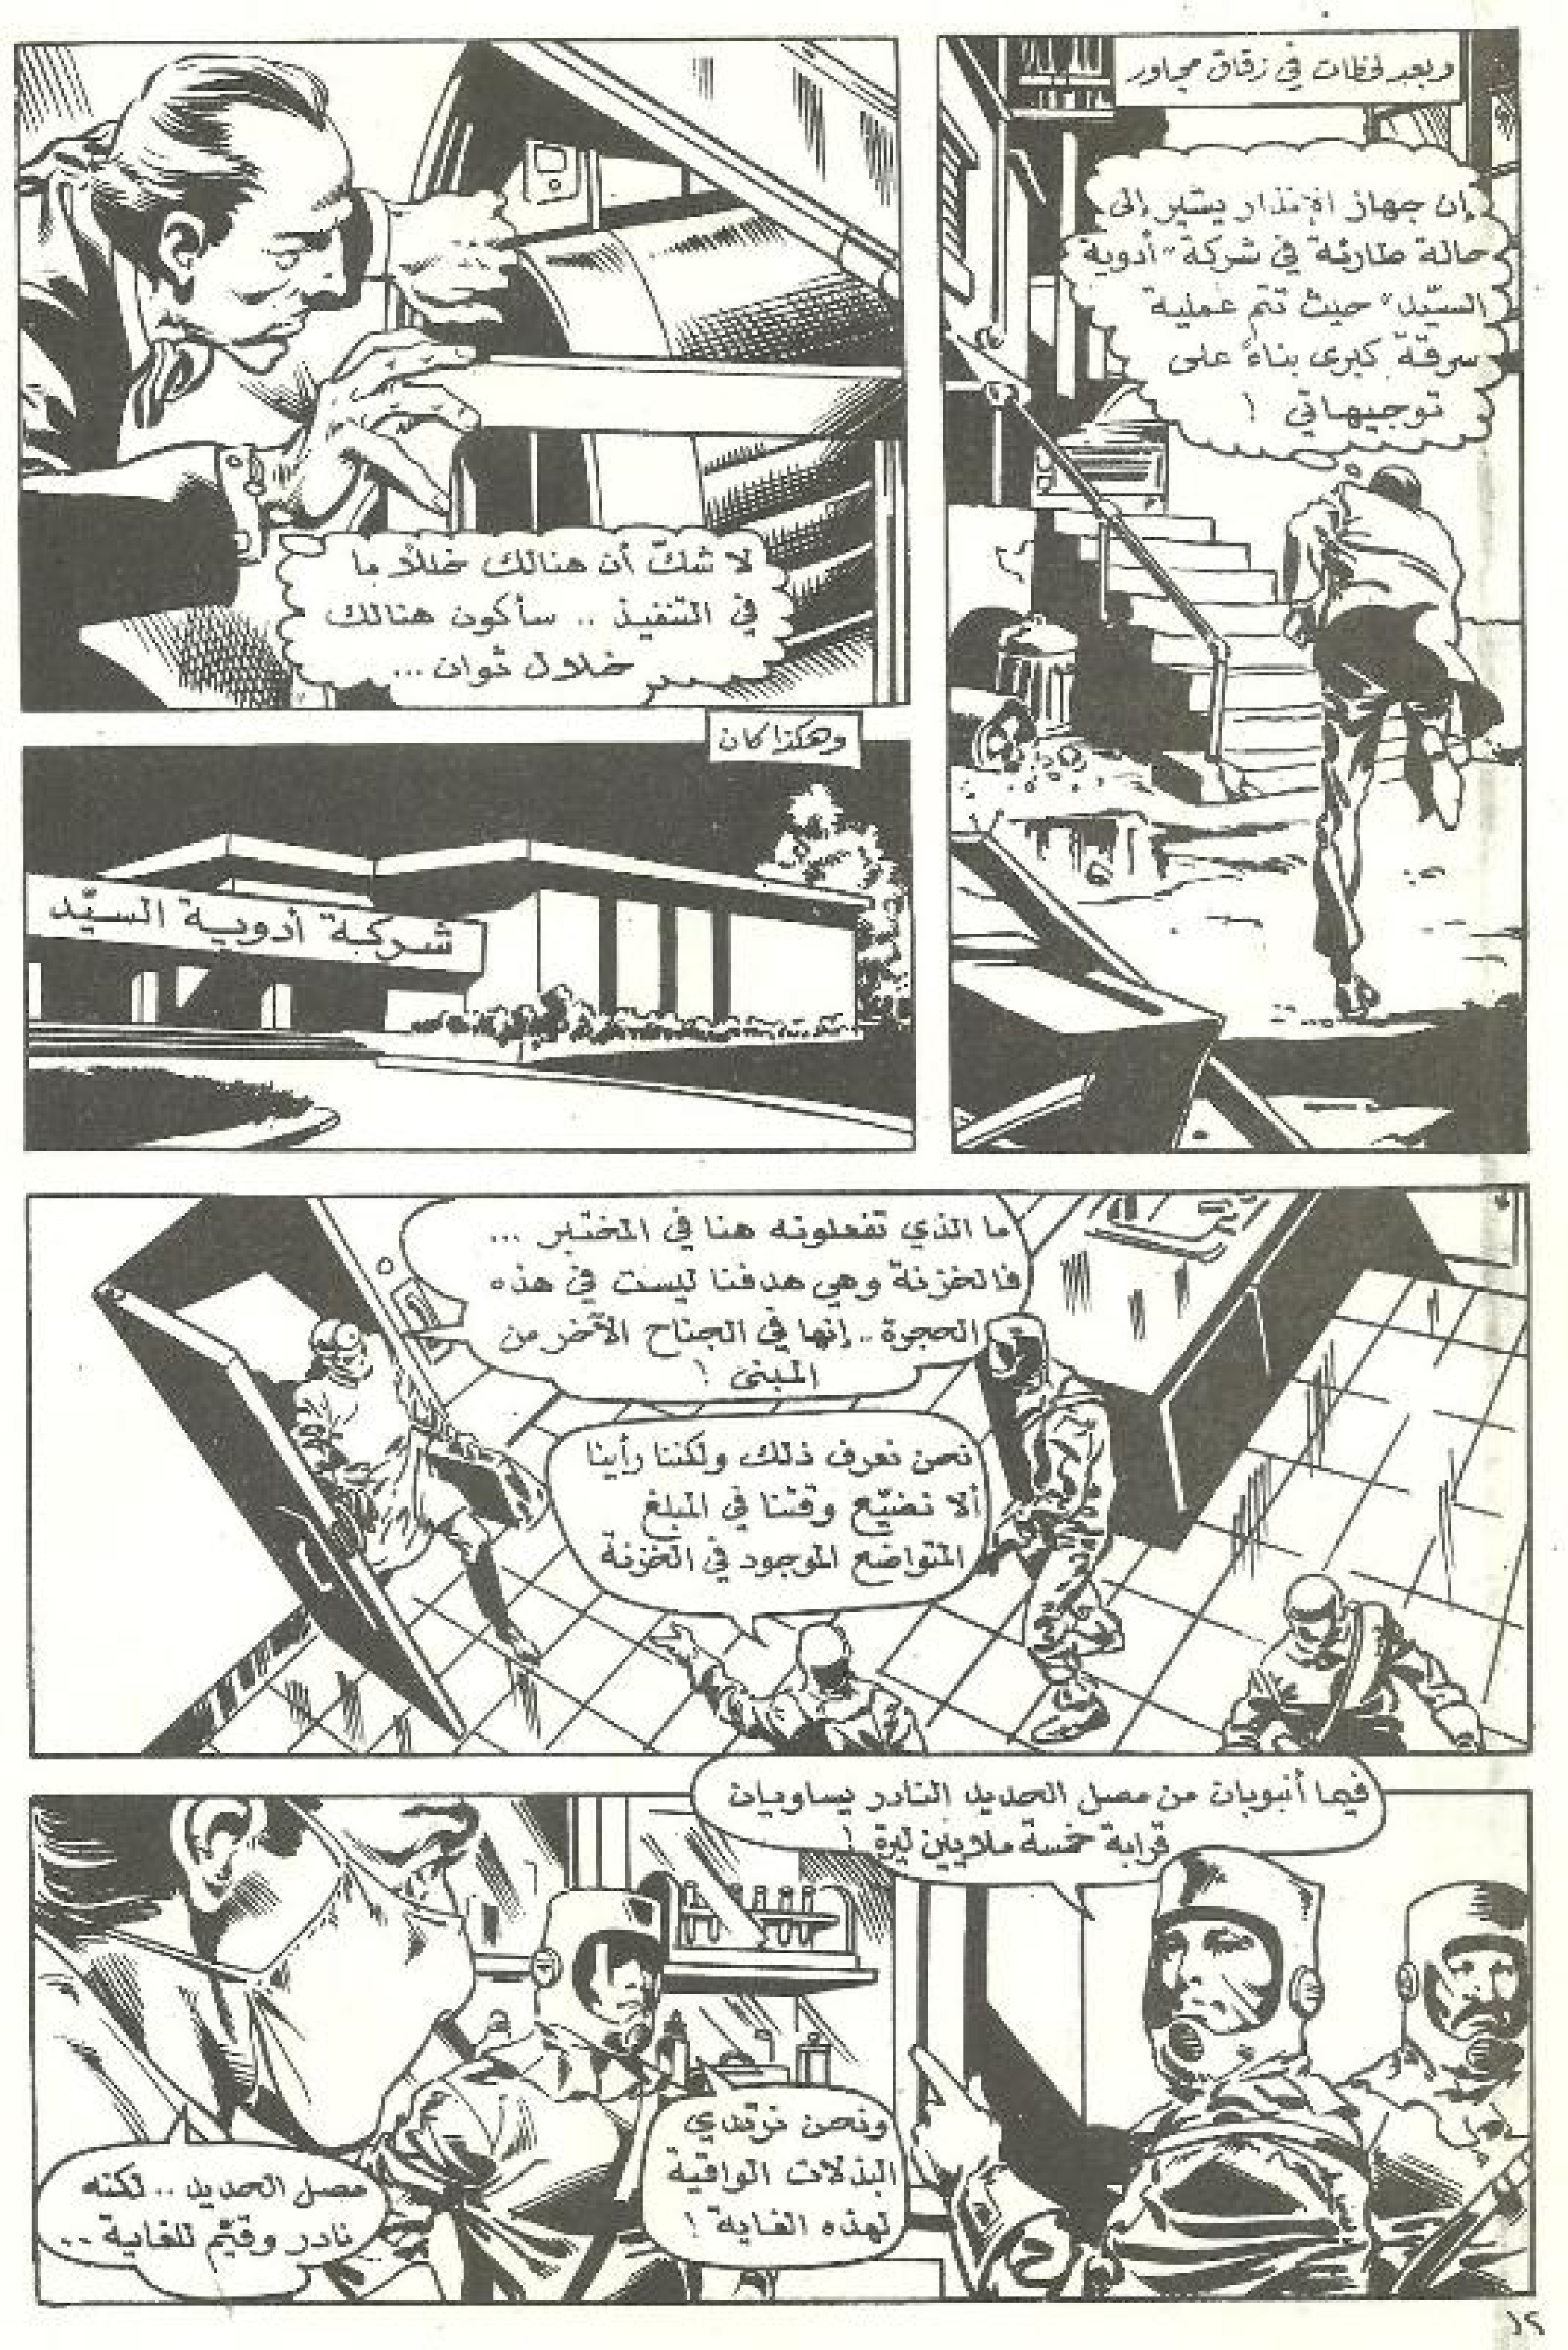 وبعد لحظات في زقاق مجاور
إن جهاز الإنذار يشير إلى
حالة طارئة في شركة "أدوية
السيّد" حيث تتم عملية
سرقة كبرى بناءً على
توجيهاتي !
لا شكّ أن هنالك خللاً ما
في التنفيذ .. سأكون هنالك
خلال ثوان ...
وهكذا كان
شركة أدوية السيّد
ما الذي تفعلونه هنا في المختبر ...
فالخزنة وهي هدفنا ليست في هذه
الحجرة .. إنها في الجناح الآخر من
المبنى !
نحن نعرف ذلك ولكننا رأينا
ألا نضيّع وقتنا في المبلغ
المتواضع الموجود في الخزنة
فيها أنبوبات من مصل الحديد النادر يساويان
قرابة خمسة ملايين ليرة !
ونحن نرتدي
البذلات الواقية
لهذه الغاية !
مصل الحديد .. لكنه
نادر وقيّم للغاية ..
١٢